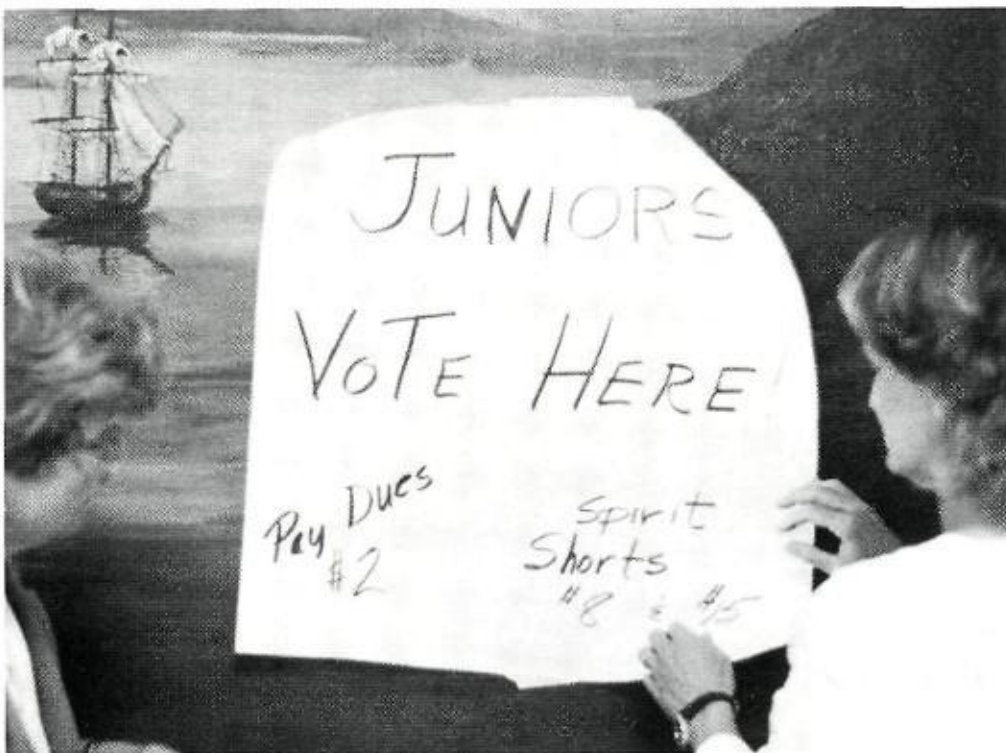 JUNIORS
VOTE HERE
Pay Dues
#2
Spirit
Shorts
#8 &